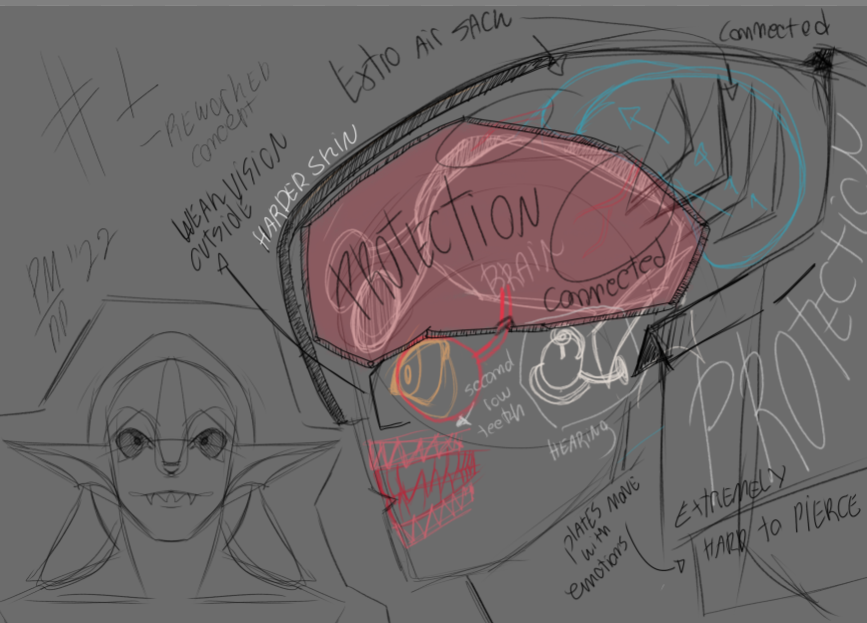 #1
- REWORKED
concept
Extra Air SACK
Connected
WEAK VISION
outside
HARDER SKIN
PROTECTION
BRAIN
connected
PM "22
DD
second
low
teeth
HEARING
PROTECTION
PLATES MOVE
with
emotions
EXTREMELY
HARD to PIERCE